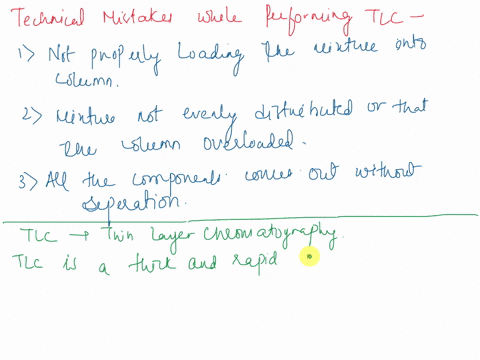 Technical Mistakes while performing TLC -
1) Not properly loading the mixture onto
column.
2) Mixture not evenly distributed or that
the column overloaded.
3) All the components comes out without
seperation.
TLC → Thin layer chromatography.
TLC is a thick and rapid